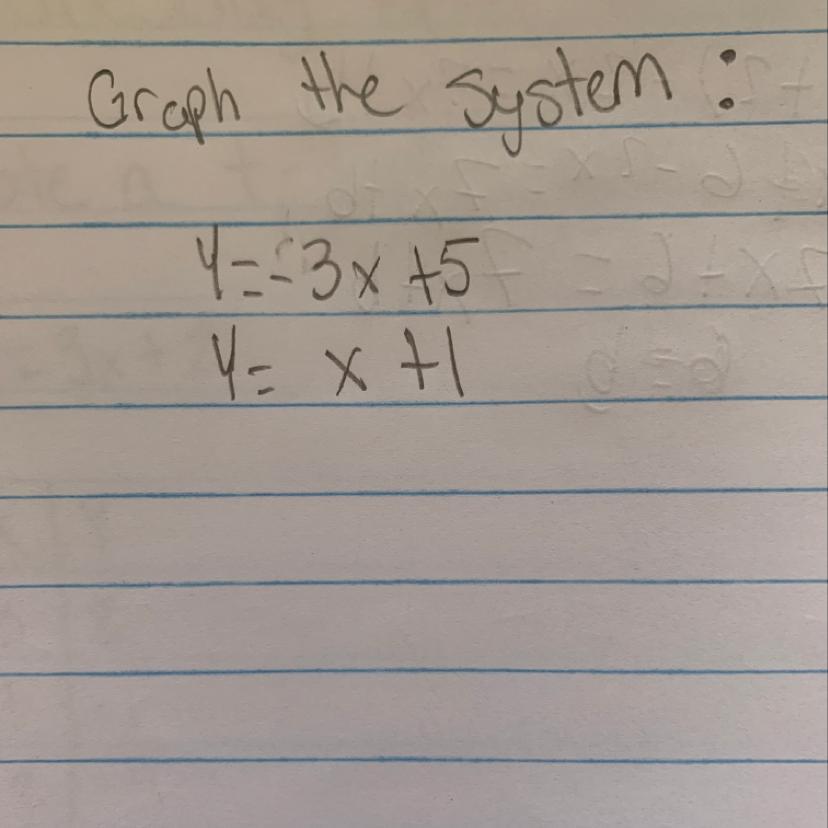 Graph the system :
y=-3x+5
y= x+1